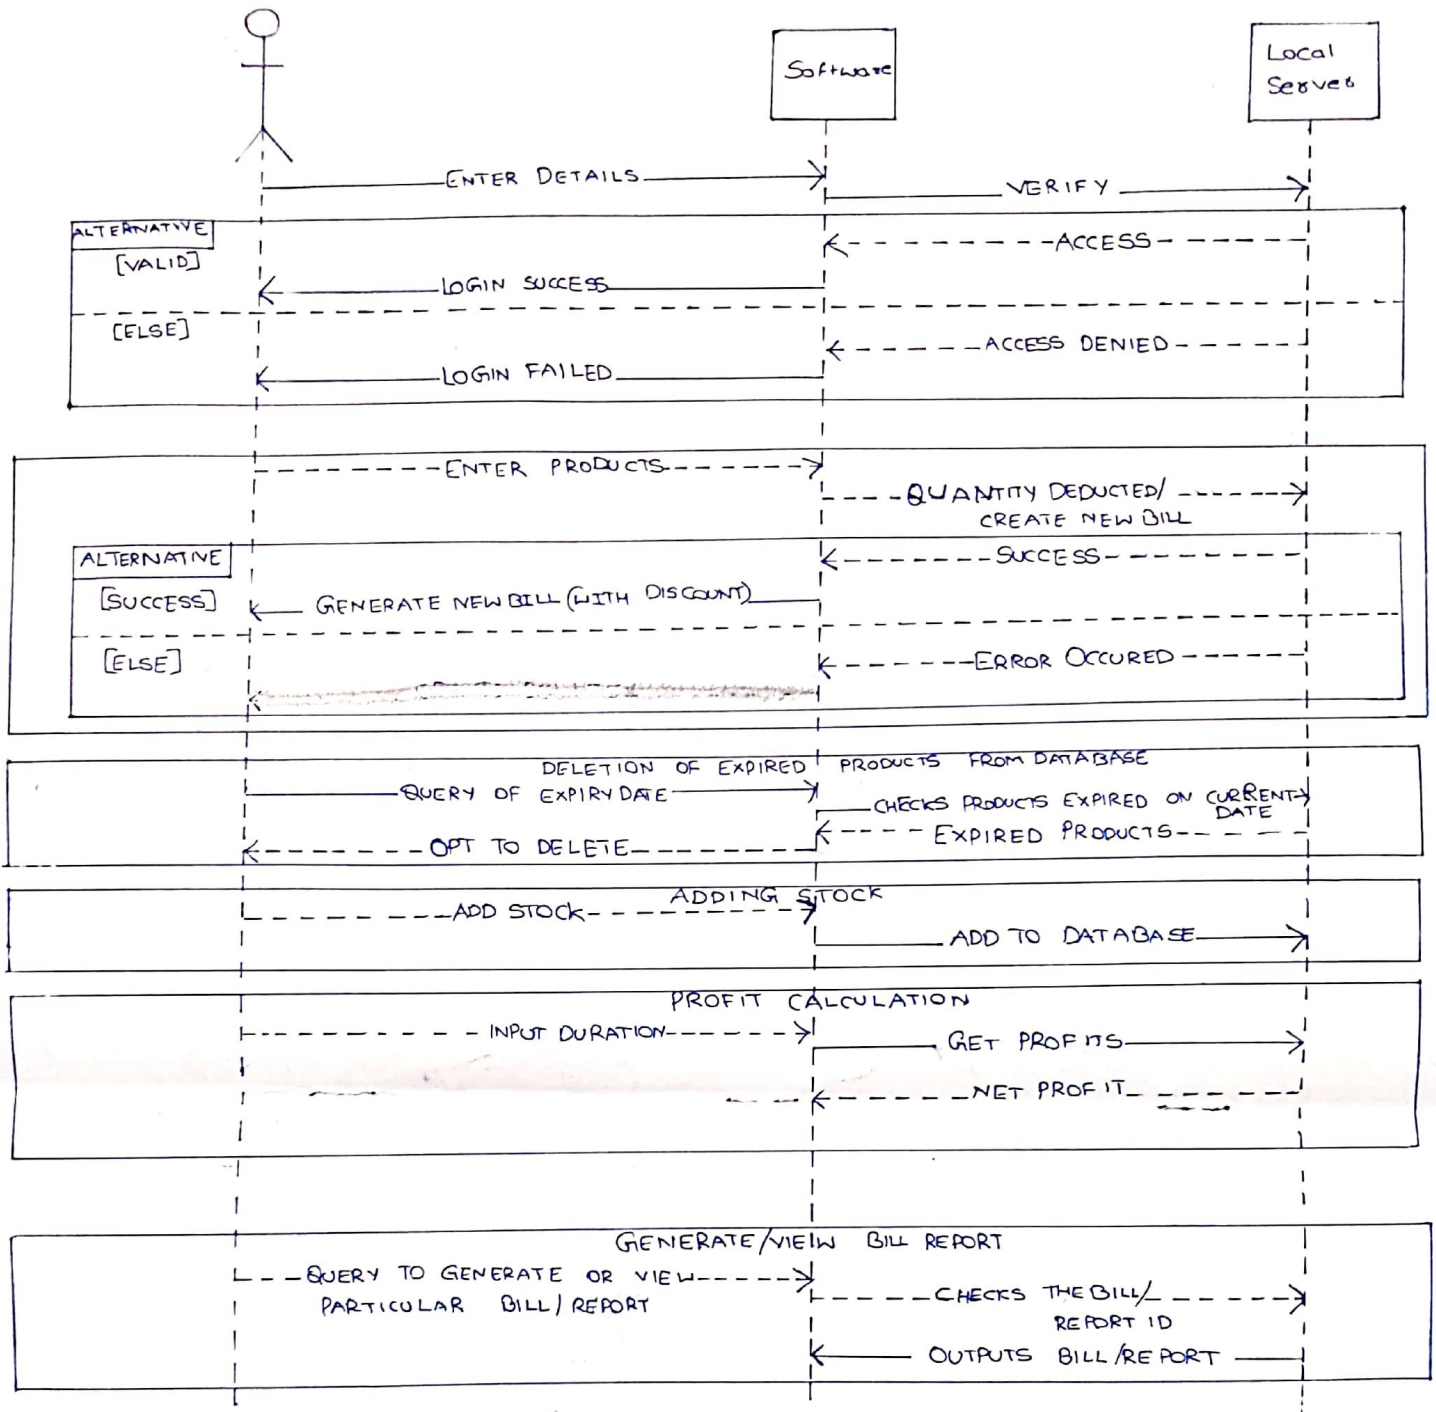 Software
Local
Server
ENTER DETAILS
VERIFY
ALTERNATIVE
[VALID]
ACCESS
LOGIN SUCCESS
[ELSE]
ACCESS DENIED
LOGIN FAILED
ENTER PRODUCTS
QUANTITY DEDUCTED/
CREATE NEW BILL
ALTERNATIVE
SUCCESS
[SUCCESS]
GENERATE NEW BILL (WITH DISCOUNT)
[ELSE]
ERROR OCCURED
DELETION OF EXPIRED PRODUCTS FROM DATABASE
QUERY OF EXPIRY DATE
CHECKS PRODUCTS EXPIRED ON CURRENT
DATE
EXPIRED PRODUCTS
OPT TO DELETE
ADDING STOCK
ADD STOCK
ADD TO DATABASE
PROFIT CALCULATION
INPUT DURATION
GET PROFITS
NET PROFIT
GENERATE/VIEW BILL REPORT
QUERY TO GENERATE OR VIEW
PARTICULAR BILL/REPORT
CHECKS THE BILL/
REPORT ID
OUTPUTS BILL/REPORT